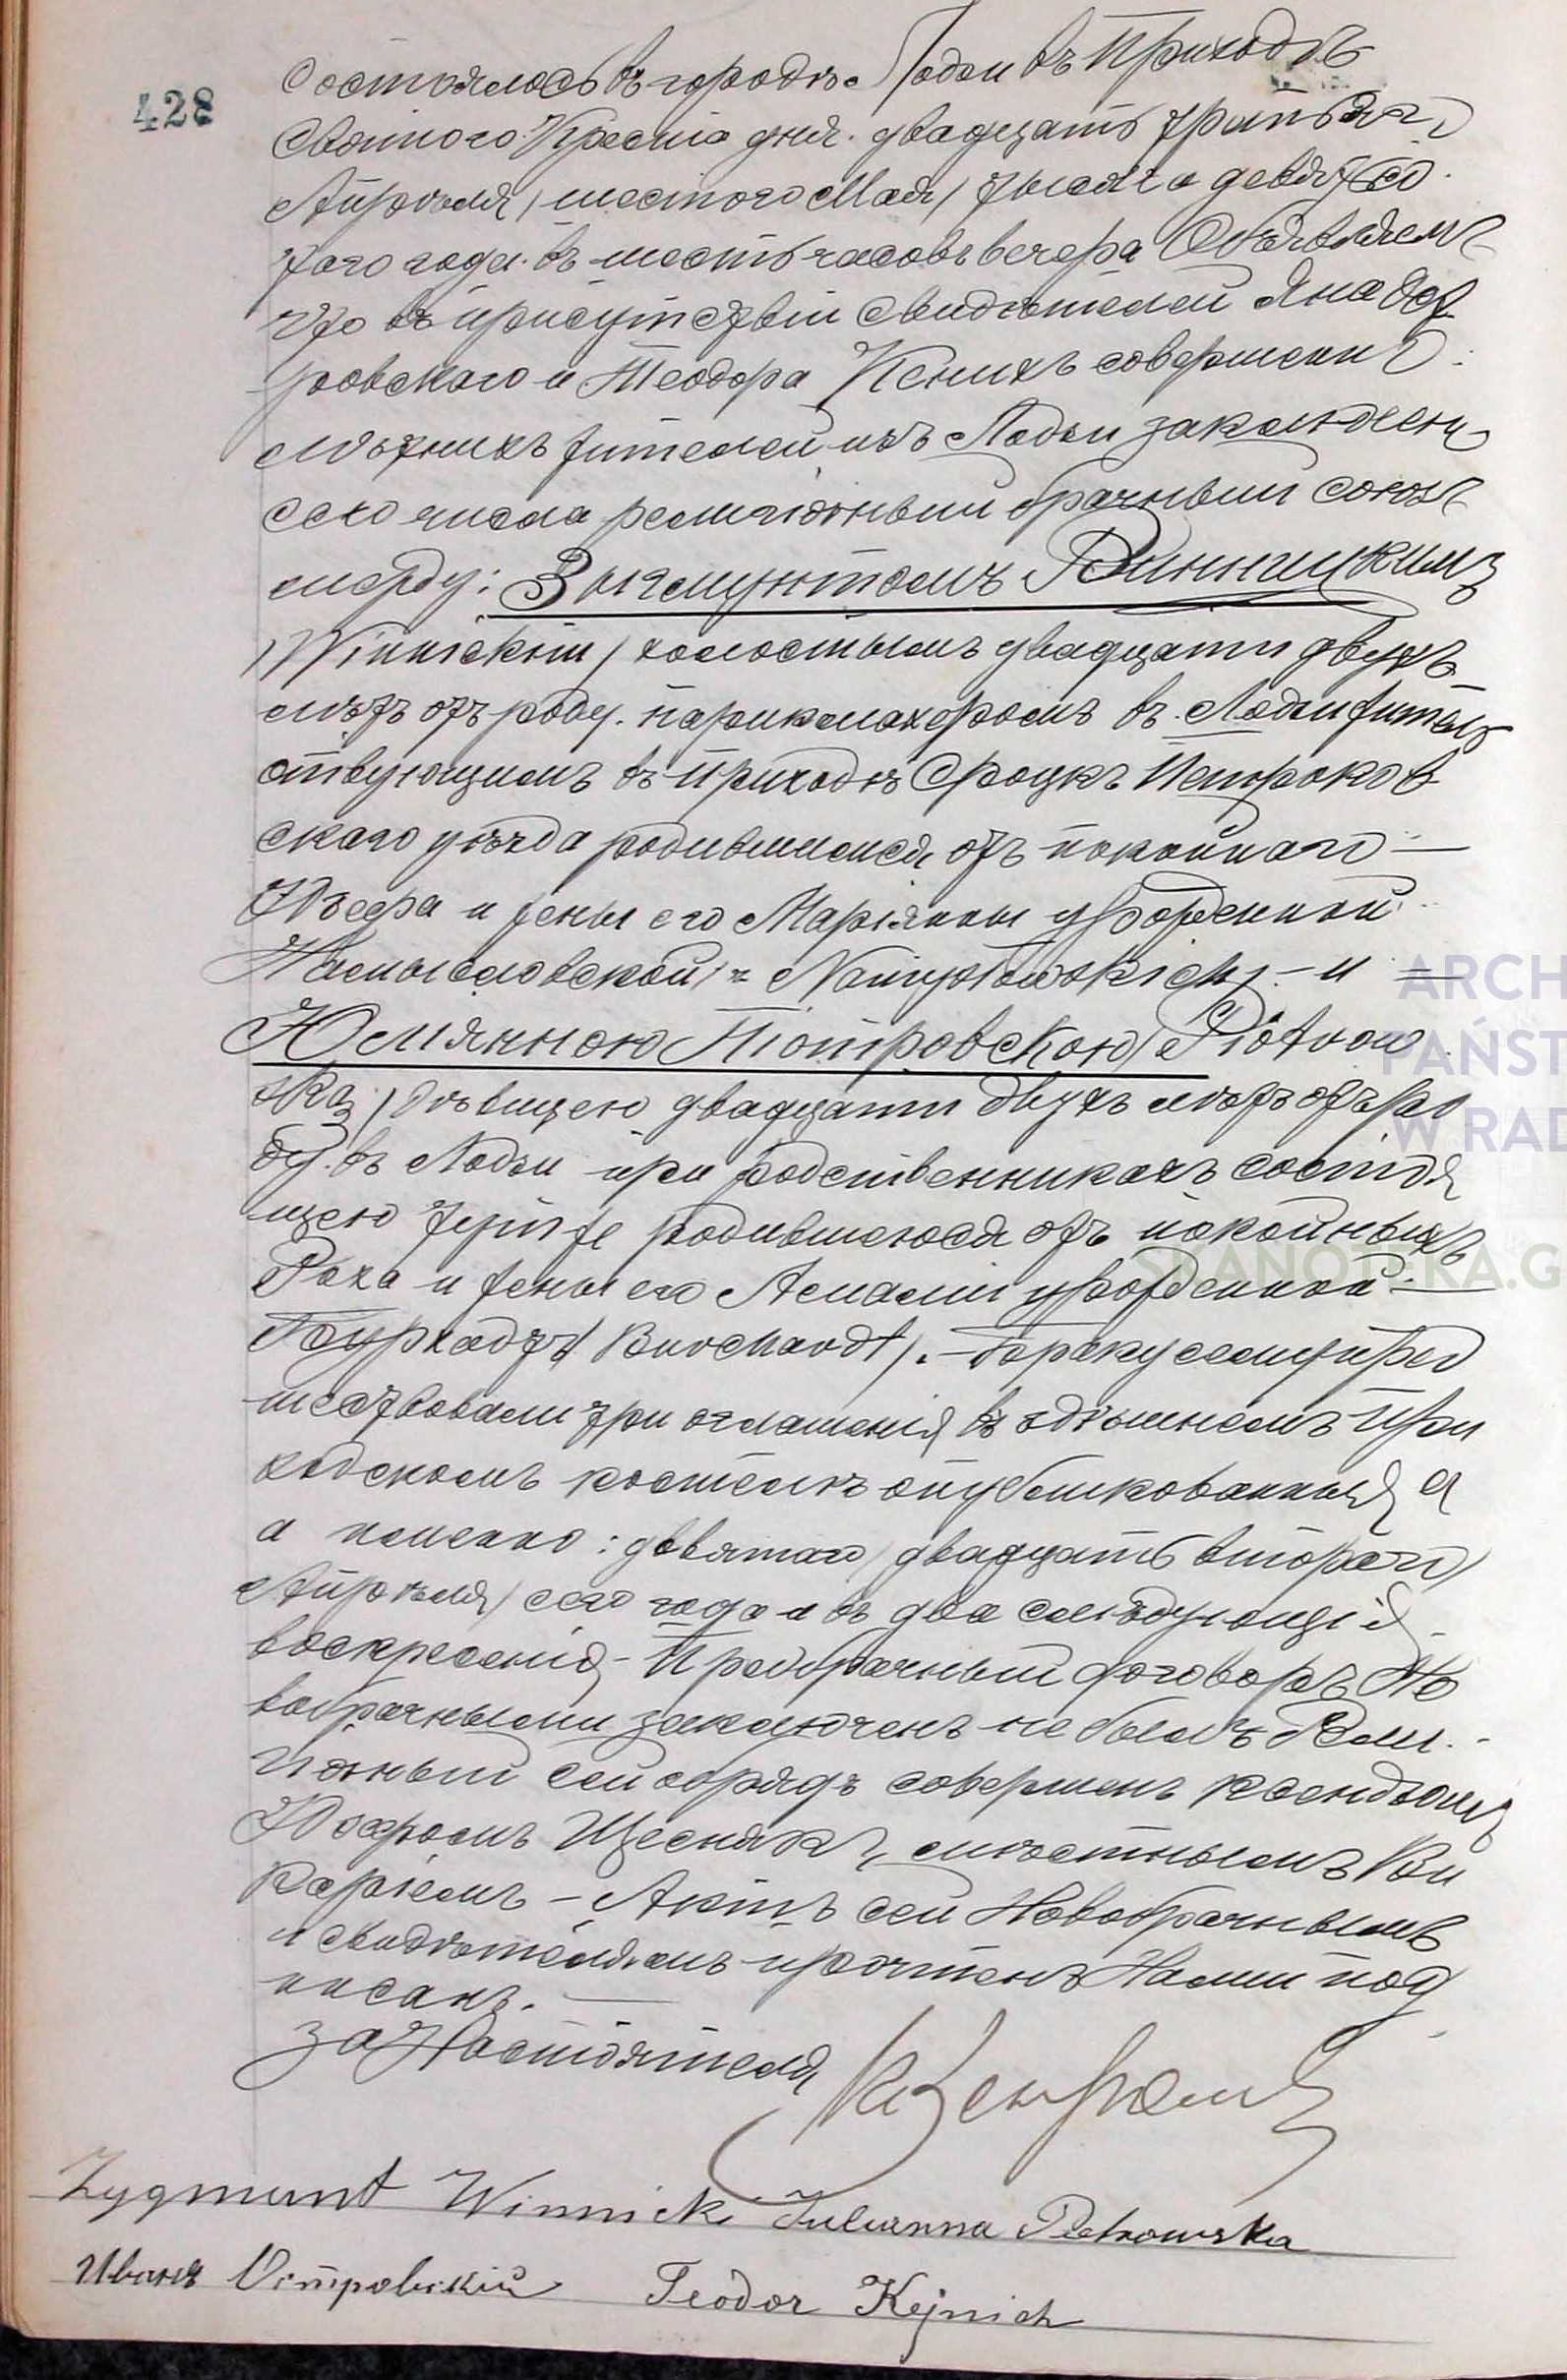 428
Состоялось въ городѣ Лодзи въ Приходѣ
Святого Креста дня двадцать третьяго
Апрѣля / шестого Мая / тысяча девятсо
того года въ шесть часовъ вечера Объявляемъ
что въ присутствіи свидѣтелей Яна Ост
ровскаго и Теодора Кенихъ совершенно
лѣтнихъ жителей изъ Лодзи заключенъ
сего числа религіозный брачный союзъ
между: Зыгмунтомъ Винницкимъ
/Winnickim/ холостымъ двадцати двухъ
лѣтъ отъ роду парикмахеромъ въ Лодзи житель
ствующимъ въ приходѣ Сроцкъ Петроков
скаго уѣзда родившимся отъ покойнаго —
Юзефа и жены его Маріянны урожденной
Намысловской / z Namysłowskich / – и —
Юліянною Піотровскою / Piotrow
ską / дѣвицею двадцати двухъ лѣтъ отъ ро
ду въ Лодзи при родственникахъ состоя
щею тутже родившеюся отъ покойныхъ
Роха и жены его Амаліи урожденной —
Бурхадтъ / Burchardt /. – Браку сему пред
шествовали три оглашенія въ здѣшнемъ При
ходскомъ костелѣ опубликованныя а
а именно: девятаго / двадцать второго /
Апрѣля / сего года и въ два слѣдующія
воскресенія – Предбрачный договоръ Но
вобрачными заключенъ не былъ Рели
гіозный сей обрядъ совершенъ ксендзомъ
Юзефомъ Щеснякъ, мѣстнымъ Ви
каріемъ – Актъ сей Новобрачнымъ
и свидѣтелямъ прочтенъ Нами под
писанъ. —
За Настоятеля
Zygmunt Winnicki Julianna Piotrowska
Иванъ Островскій Teodor Kejnich
ARCH
PAŃST
W RAD
SKANOTEKA.G